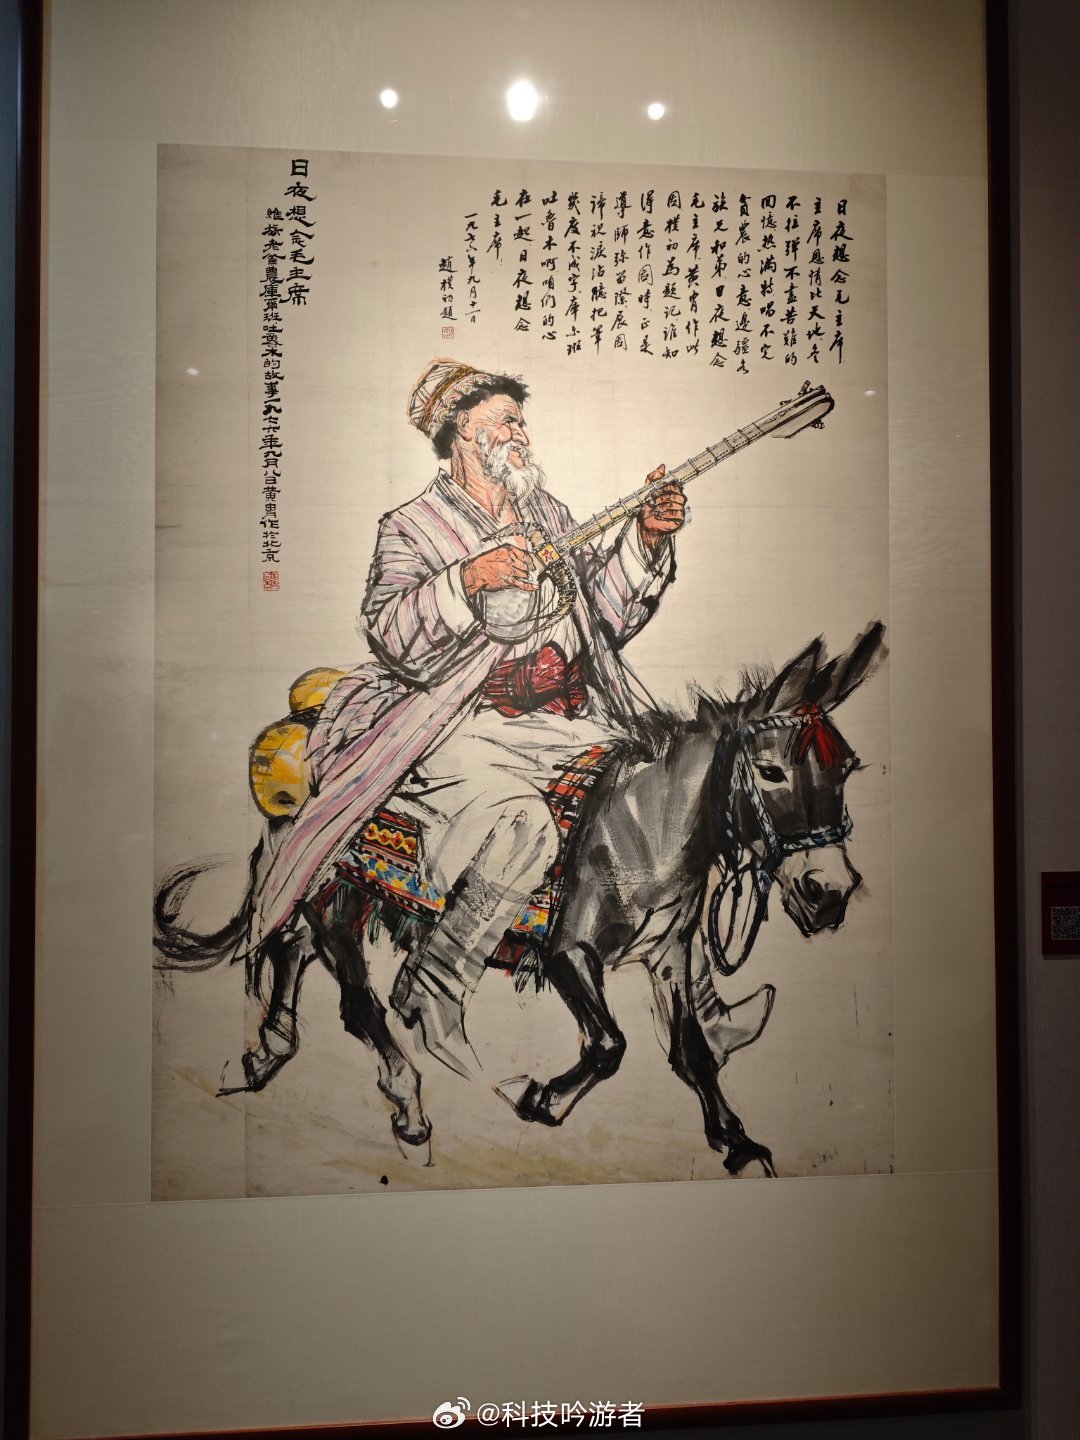 日夜想念毛主席
主席恩情比天地冬
不拉彈不盡苦難的
回憶热滿特唱不完
貧農的心意邊疆各
族兄和弟日夜想念
毛主席黄胄作此
圖樸初為題記誰知
得意作圖時正是
導師弥留際展圖
諦視淚沾臆把筆
幾度不成字庫尔班
吐魯木啊咱們的心
在一起日夜想念
毛主席
一九七六年九月十一日
趙樸初題
日夜想念毛主席
維族老貧農庫爾班吐魯木的故事一九七六年九月八日黄胄作於北京
@科技吟游者